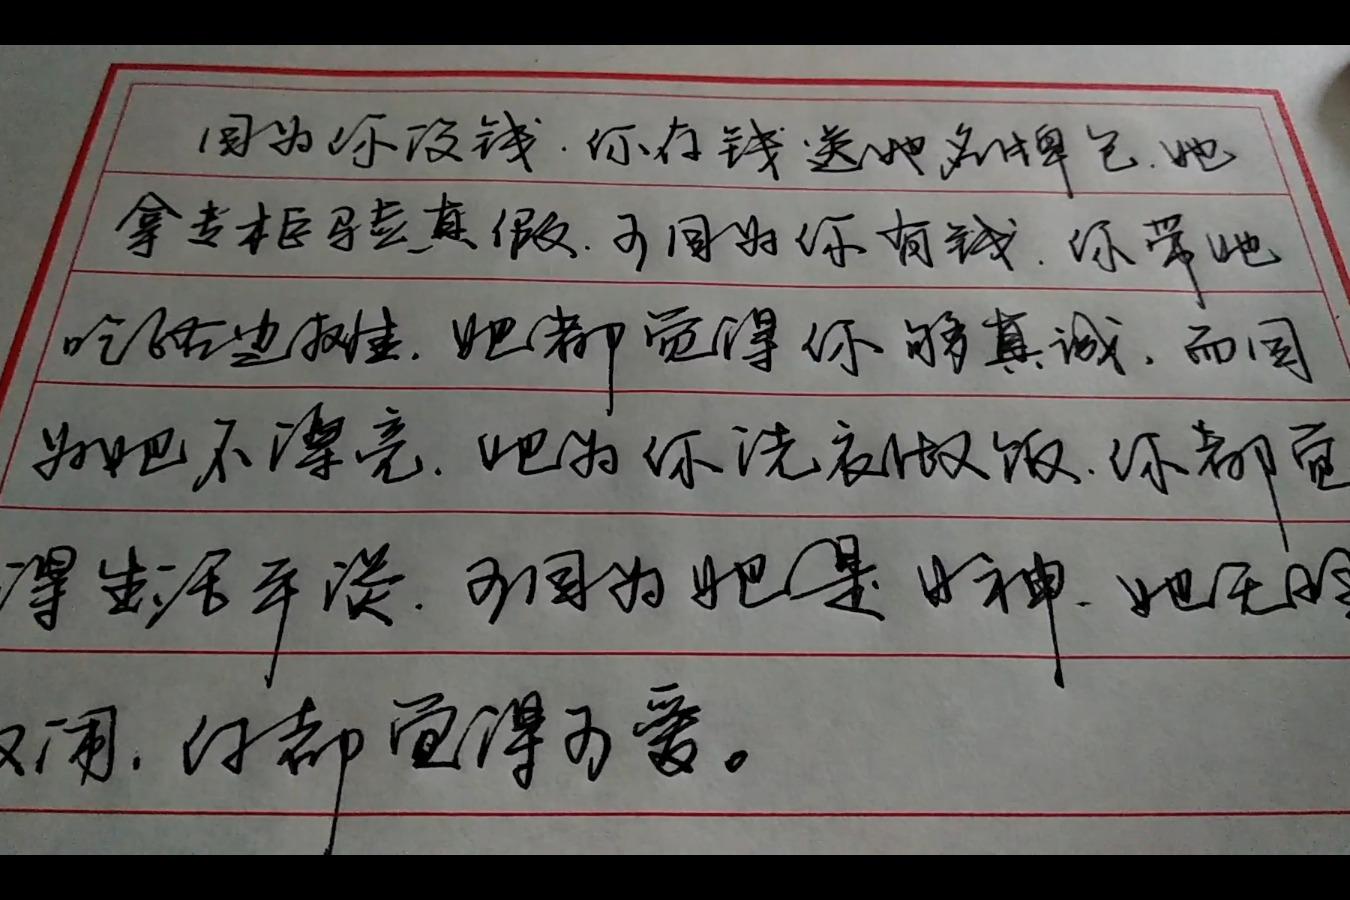 因为你没钱.你存钱送她名牌包.她
拿专柜验真假.可因为你有钱.你带她
吃路边摊.她都觉得你够真诚.而因
为她不漂亮.她为你洗衣做饭.你都觉
得生活平淡.可因为她是女神.她无
闹.你都觉得可爱。